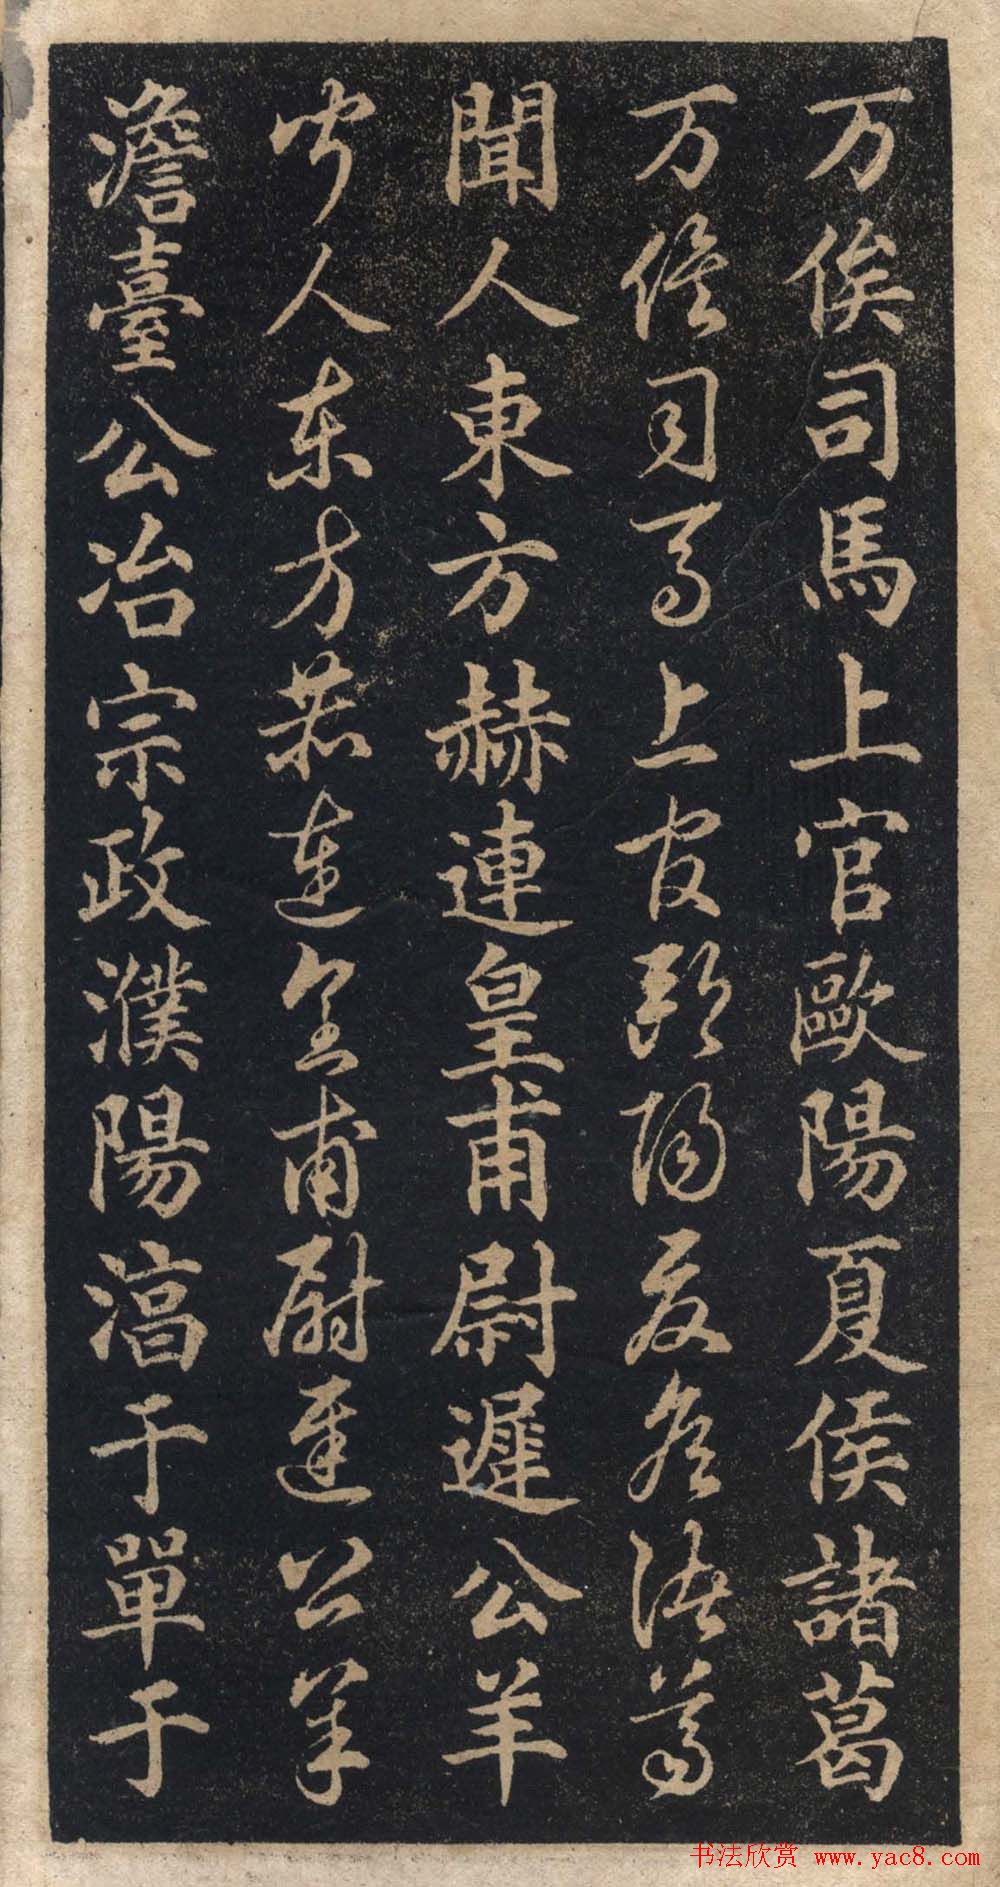 万俟司馬上官歐陽夏侯諸葛
万俟司马上官欧阳夏侯诸葛
聞人東方赫連皇甫尉遲公羊
闻人东方赫连皇甫尉迟公羊
澹臺公冶宗政濮陽淳于單于
书法欣赏 www.yac8.com